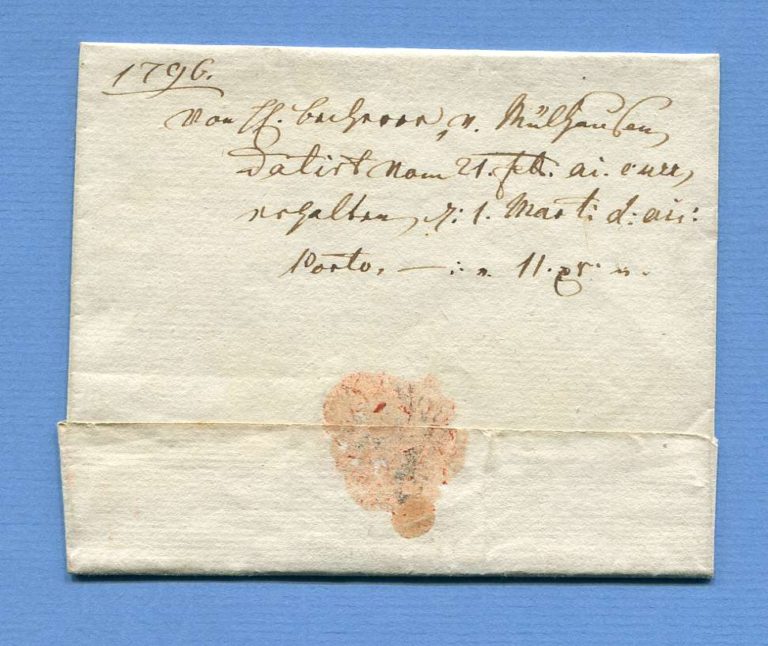 1796.
Von H. v. Mülhausen,
Datirt vom 21. feb. ai. curr,
erhalten, 1. Marti: d: ai:
Porto. — : 11. xr.